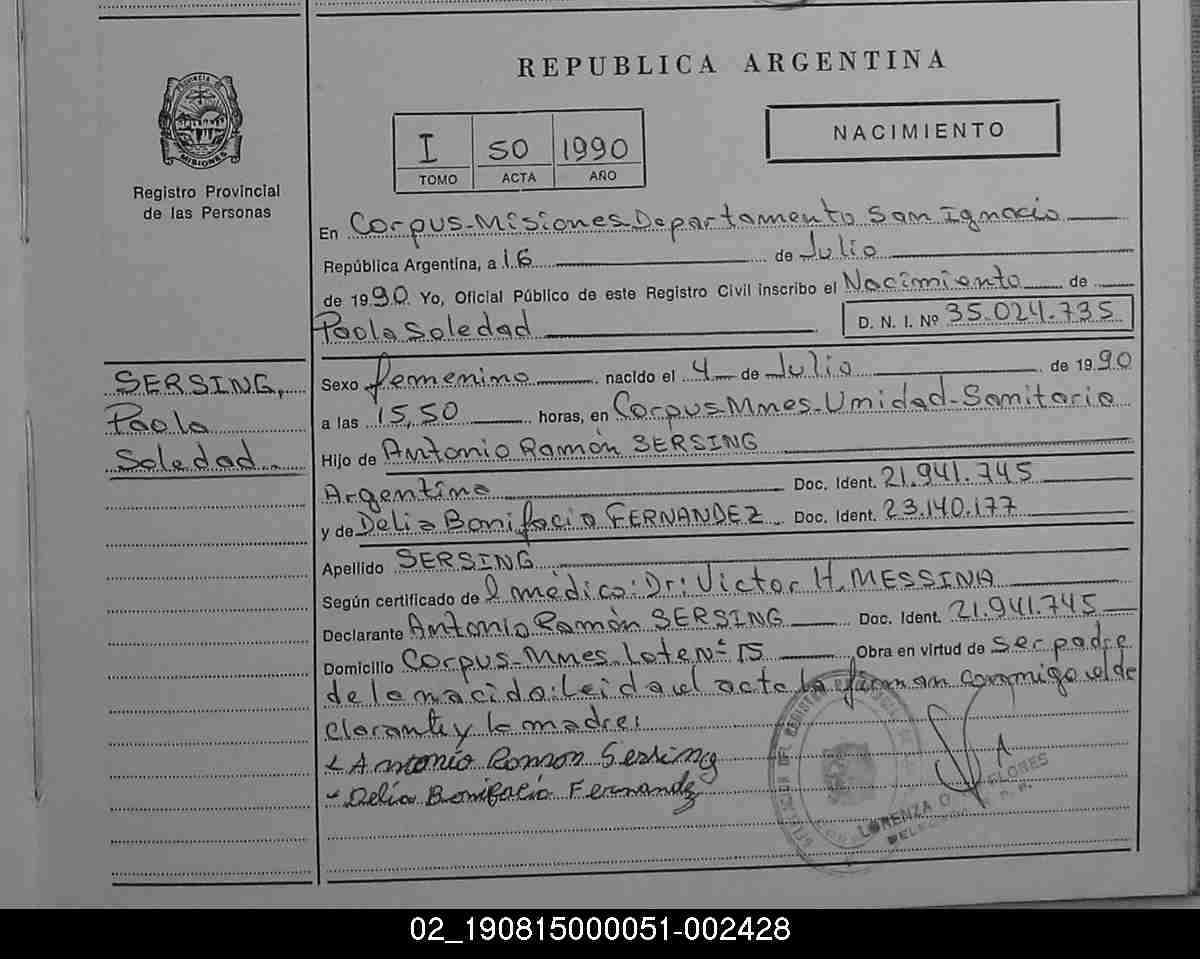 REPUBLICA ARGENTINA
PROVINCIA DE
MISIONES
Registro Provincial
de las Personas
I 50 1990
TOMO ACTA AÑO
NACIMIENTO
En Corpus-Misiones Departamento San Ignacio
República Argentina, a 16 de Julio
de 1990. Yo, Oficial Público de este Registro Civil inscribo el Nacimiento de
Paola Soledad
D. N. I. Nº 35.024.735
SERSING,
Paola
Soledad
Sexo femenino nacido el 4 de Julio de 1990
a las 15,50 horas, en Corpus-Mnes-Unidad-Sanitaria
Hijo de Antonio Ramón SERSING
Argentino Doc. Ident. 21.941.745
y de Delia Bonifacia FERNANDEZ Doc. Ident. 23.140.177
Apellido SERSING
Según certificado del médico: Dr: Victor H. MESSINA
Declarante Antonio Ramón SERSING Doc. Ident. 21.941.745
Domicilio Corpus-Mnes. Lote Nº 15 Obra en virtud de ser padre
de la nacida: Leida el acta la firman conmigo el de
clarante y la madre:
Antonio Ramon Sersing
Delia Bonifacia Fernandez
LORENZA FLORES
02_190815000051-002428